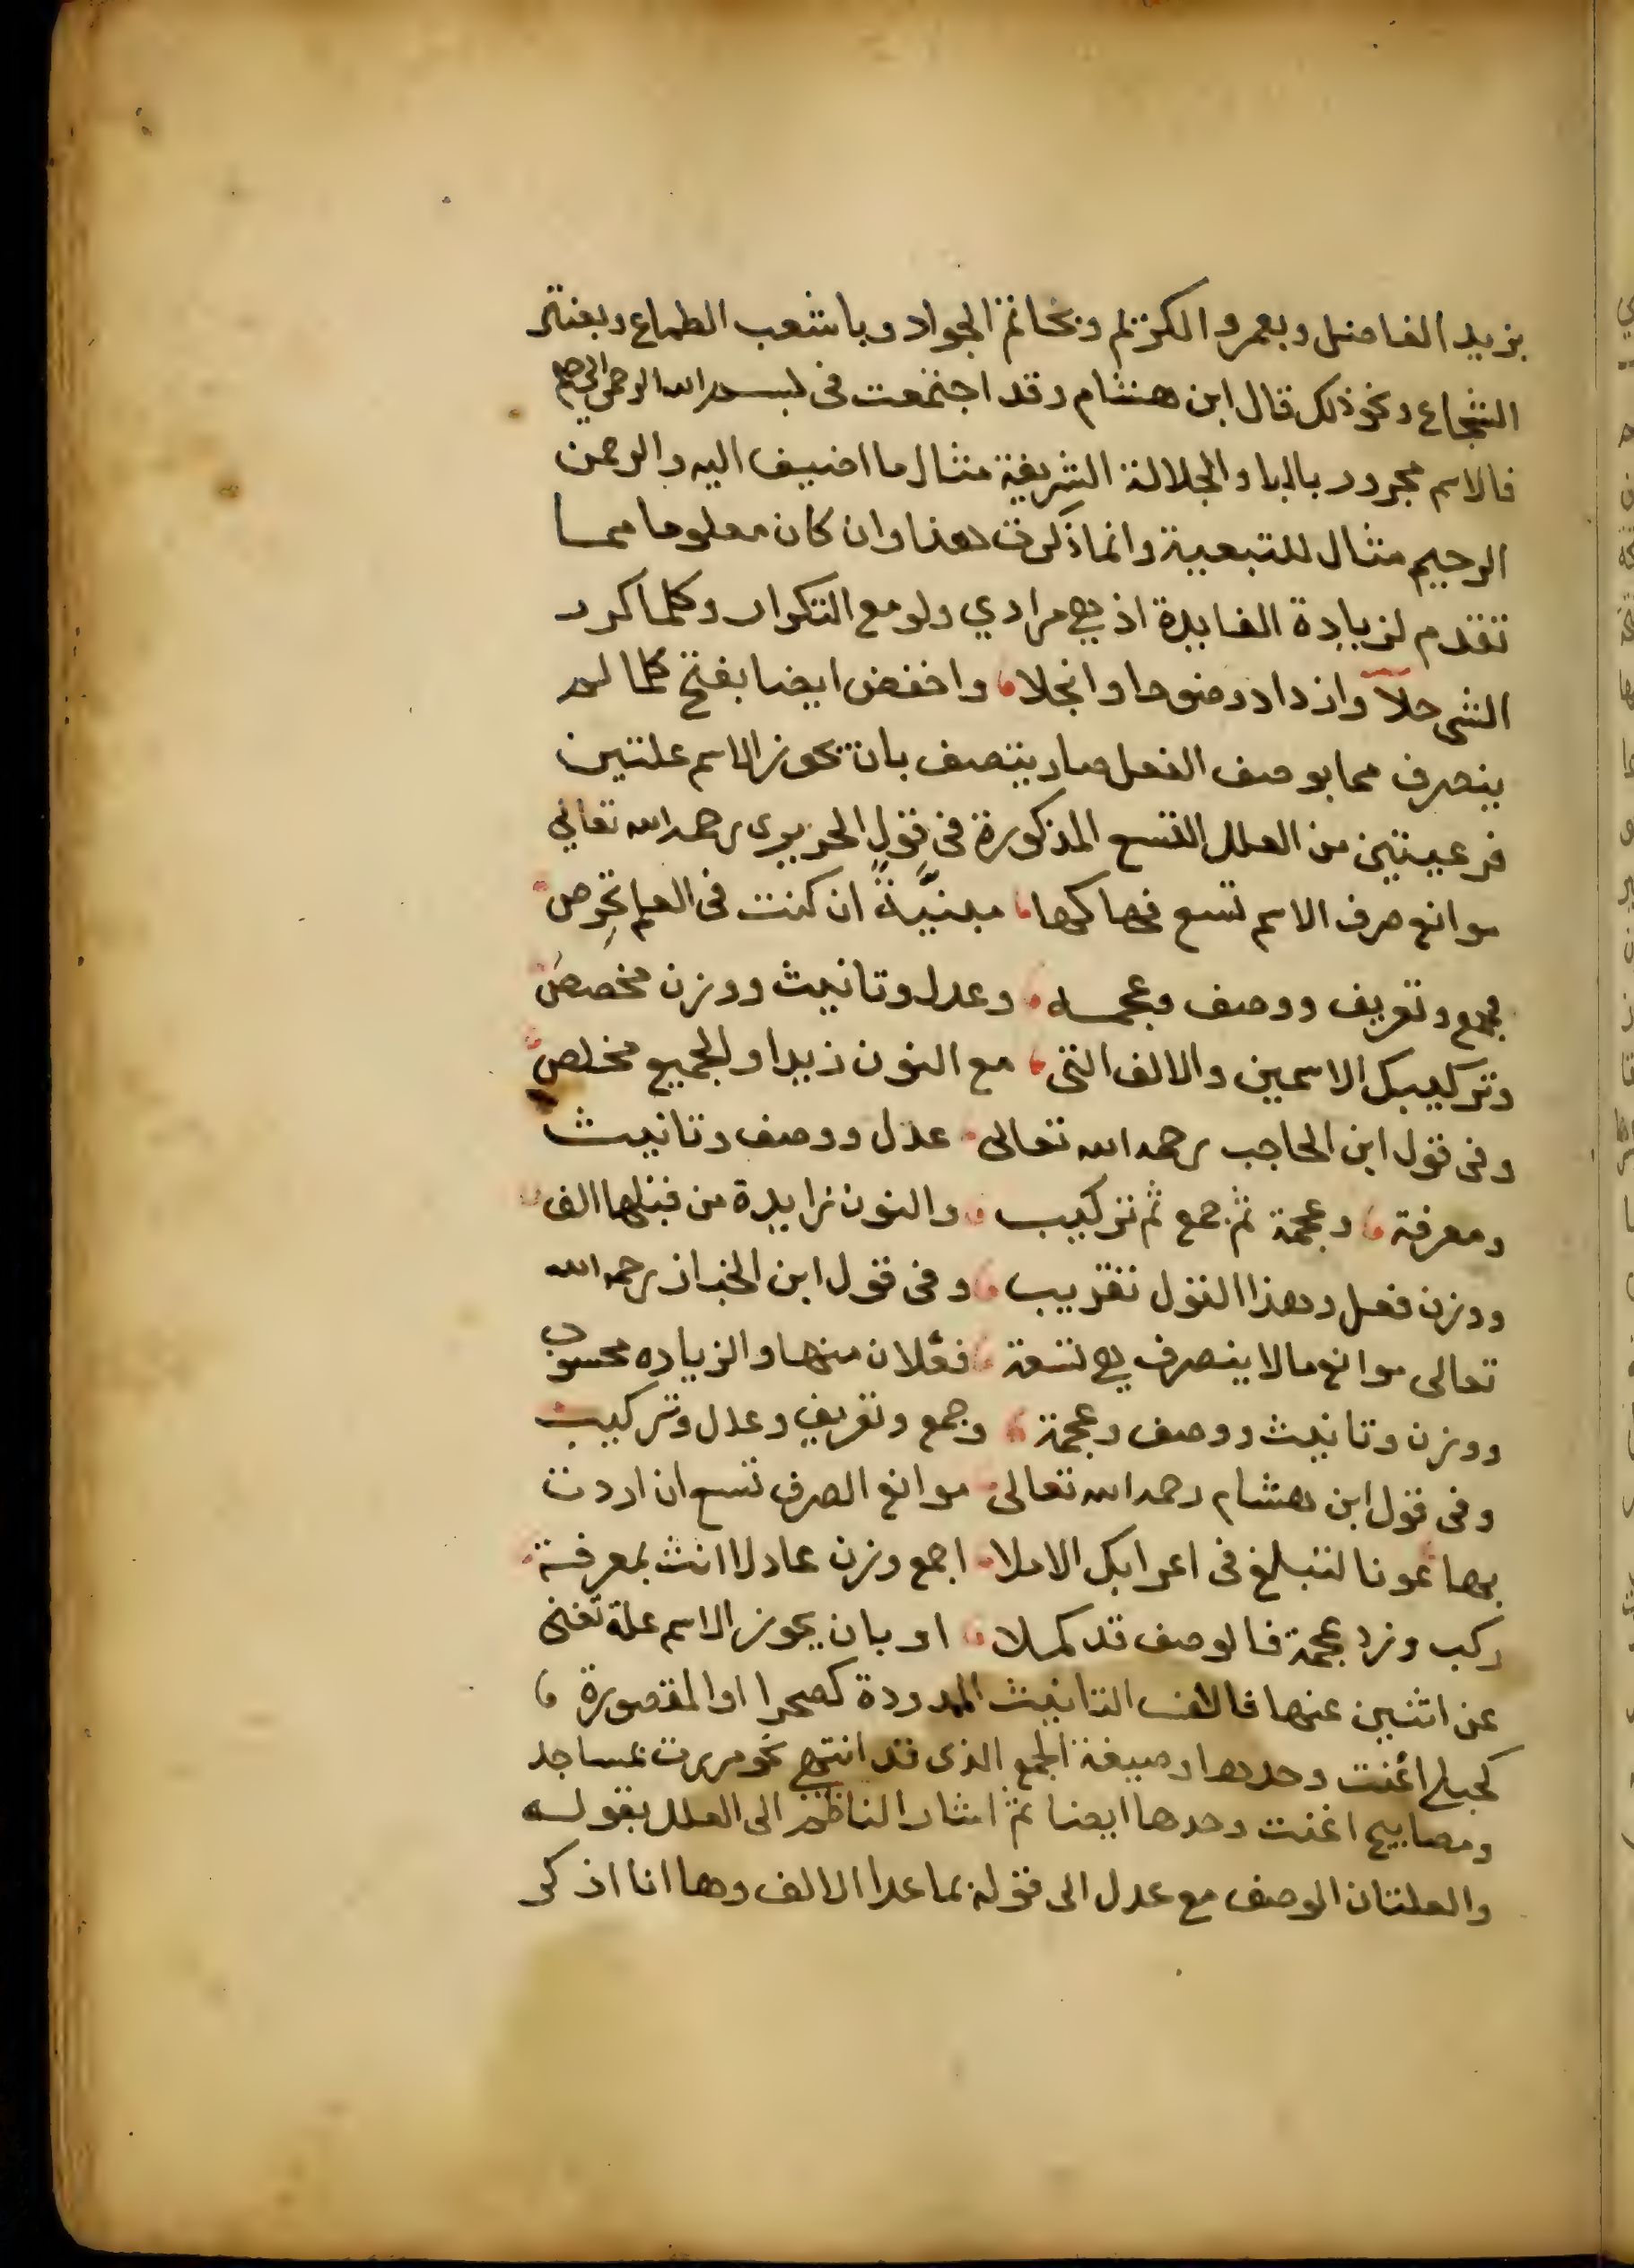 بزيد الفاضل وبعمرو الكريم وبحاتم الجواد وباشعب الطماع وبعنتر
الشجاع ونحو ذلك قال ابن هشام وقد اجتمعت فى بسم الله الرحمن الرحيم
فالاسم مجرور بالبا والجلالة الشريفة مثال ما اضيف اليه والرحمن
الرحيم مثال للتبعية وانما ذكرت هذا وان كان معلوما مما
تقدم لزيادة الفايدة اذ هي مرادي ولو مع التكرار وكلما كرر
الشى حلا وازداد وضوحا وانجلا واخفض ايضا بفتح كلما لم
ينصرف مما بوصف الفعل صار يتصف بان تحوز الاسم علتين
فرعيتين من العلل التسع المذكورة فى قول الحريرى رحمه الله تعالى
موانع صرف الاسم تسع فهاكها مبنيّةً ان كنت فى العلم تحرص
جمع وتعريف ووصف وعجمه وعدل وتانيث ووزن مخصص
وتركيبك الاسمين والالف التى مع النون زيدا والجميع مخلص
وفى قول ابن الحاجب رحمه الله تعالى عدل ووصف وتانيث
ومعرفة وعجمة ثم جمع ثم تركيب والنون زايدة من قبلها الف
ووزن فعل وهذا القول تقريب وفى قول ابن الخباز رحمه الله
تعالى موانع ما لا ينصرف هي تسعة فعلان منها والزياده محسوب
ووزن وتانيث ووصف وعجمة وجمع وتعريف وعدل وتركيب
وفى قول ابن هشام رحمه الله تعالى موانع الصرف تسع ان اردت
بها عونا لتبلغ فى اعرابك الاملا اجمع وزن عادلا انث بمعرفة
ركب وزد عجمة فالوصف قد كملا او بان يحوز الاسم علة تغنى
عن اثنين عنها فالالف التانيث الممدودة كصحرا او المقصورة
كحبلى اغنت وحدها وصيغة الجمع الذى قد انتهى نحو مررت بمساجد
ومصابيح اغنت وحدها ايضا ثم اشار الناظم الى العلل بقوله
والعلتان الوصف مع عدل الى قوله بما عدا الالف وها انا اذكر